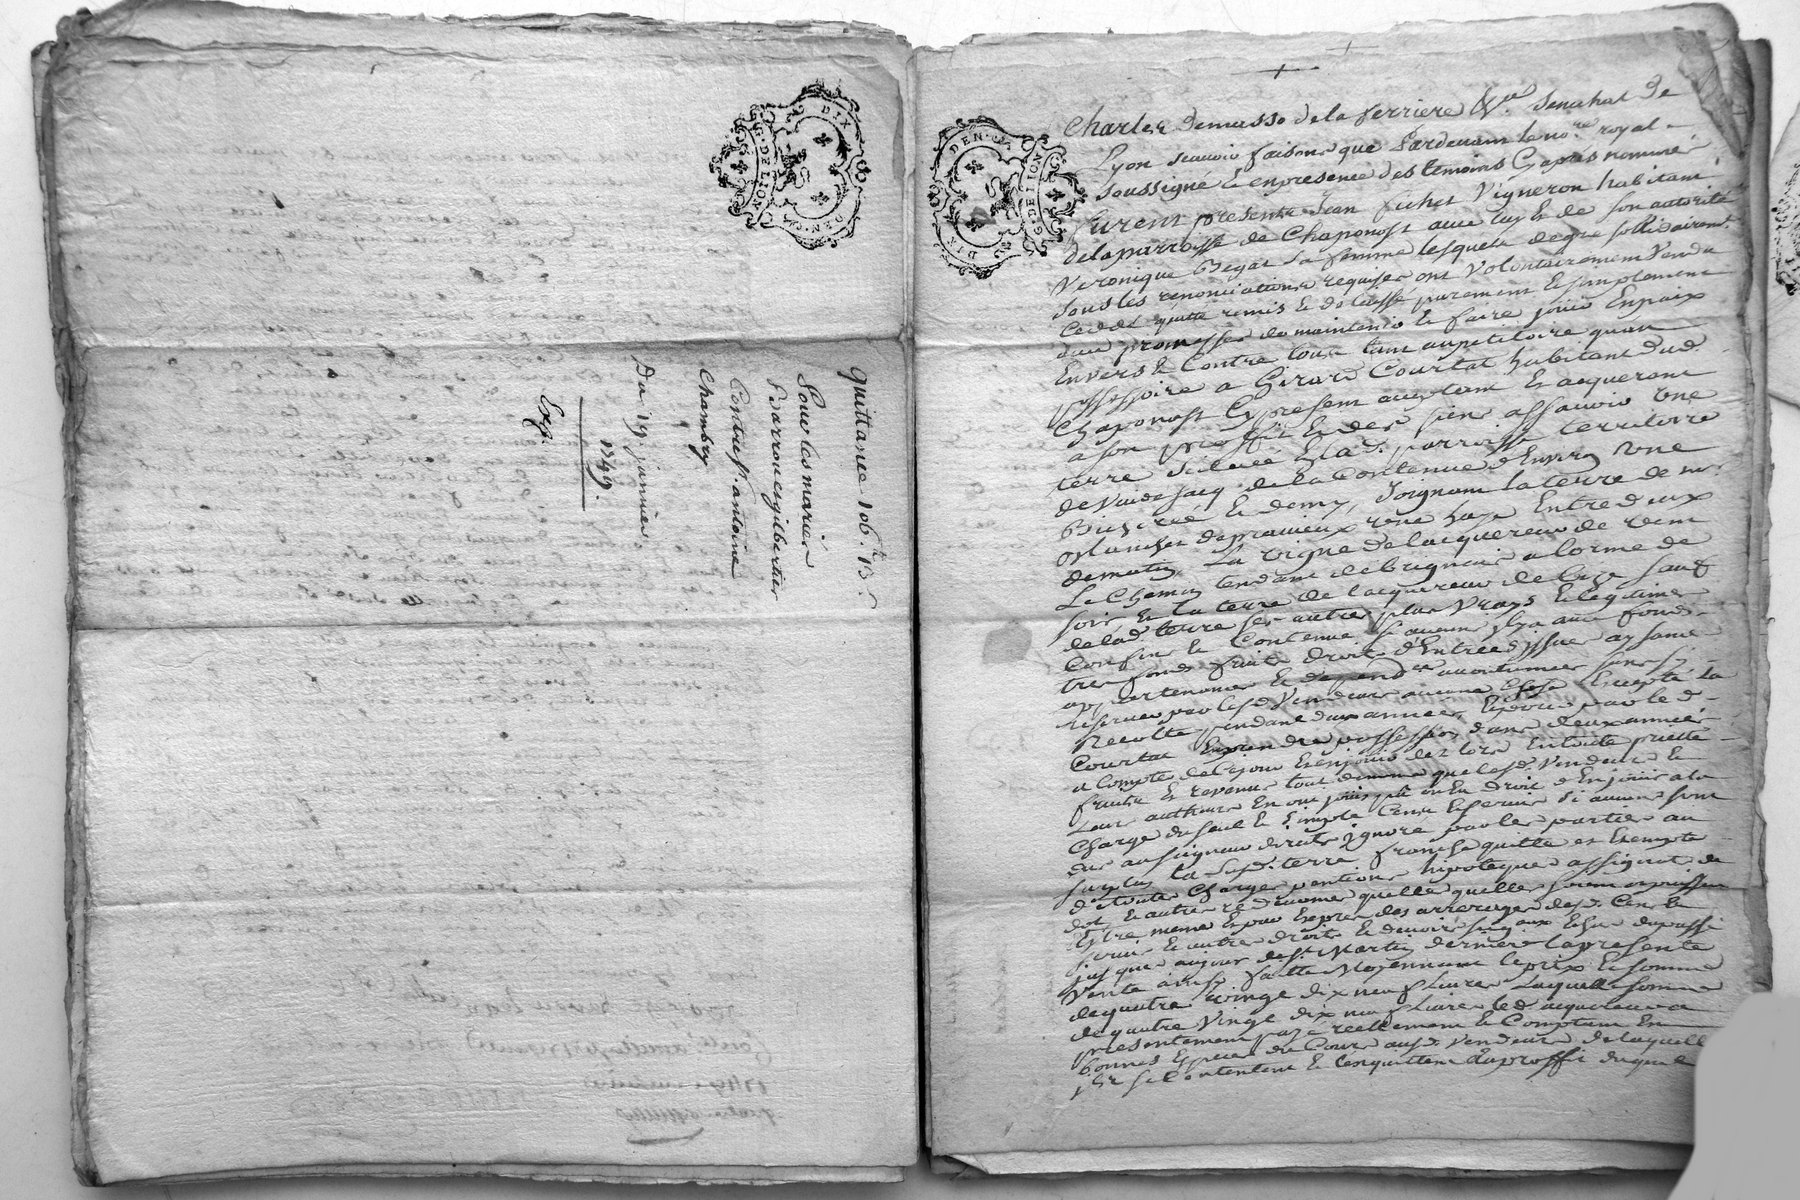 DIX DEN.ers
G. DE LION
quittance 106.tt 13.s
Pour les mariés
Contre s.r antoine
Chambry
Du 19 janvier
1749.
Exp.
DIX DEN.ers
G. DE LION
Charles Demasso de la ferriere Senechal de
Lyon scavoir faisons que Pardevant le no.re royal
soussigné & en presence des temoins Cy après nommés
furent presents Jean fichet Vigneron habitant
de la parroisse de Chaponost avec luy & de son autorité
Veronique Begat sa femme lesquels de gré sollidairem.t
sous les renonciations requises ont Volontairement Vendu
Cedé quitté remis & delaissé purement & simplement
avec promesse de maintenir & faire jouir En paix
Envers & Contre tous tant au petitoire quau
possessoire a Girard Courtat habitant dud.
Chaponost Cy present acceptant & acquerant
a son proffit & des siens assavoir Une
terre située En lad. parroisse territoire
de la Contenue d'Environ Une
Bicherée & demy, Joignant la terre de m.r
une haye Entre deux
de matin, La Vigne de lacquereur de Vent
Le Chemin tendant de brignais a lorme de
soir & la terre de lacquereur de bize sauf
de lad. terre ses autres plus Vrays & legitimes
Confins & Contenue si aucuns y en a avec fonds
tres fonds fruits droits d'Entrées issues aysances
appartenances & dependces accoutumées sans sy
reserver par lesd. Vendeurs aucune chose Excepté La
Recolte pendant deux années, & pour par led.
Courtat En prendre possession dans deux années
a Compter de Ce jour & En jouir des lors En toute proprieté
fruits & revenus tout de meme que lesd. Vendeurs &
Leurs autheurs En ont joui pû ou Eu droit d'En jouir a la
Charge du seul & simple Cens & servis si aucuns sont
dus au seigneur direct ignoré par les parties au
surplus lad. terre franche quitte et Exempte
de toutes Charges pentions hipoteques assignat de
dot & autres redevances quelles quelles soient ou puissent
Estre meme & pour Expres des arrerages desd. Cens &
servis & autres droits & devoirs seig.aux Echus du passé
jusques au jour de s.t Martin dernier la presente
Vente ainsy faitte Moyennant le prix & somme
de quatre Vingt dix neuf Livres Laquelle somme
de quatre Vingt dix neuf Livres led. acquereur a
presentement payé reellement & Comptant En
bonnes Especes du Cours auxd. Vendeurs de laquelle
ils se Contentent & l'en quittent au proffit duquel